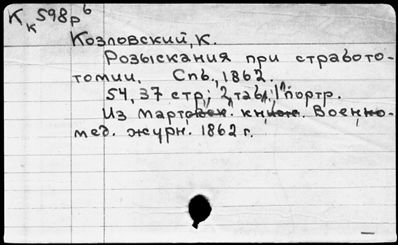 Кк 598р б
Козловский, К.
Розыскания при стработо-
томии. Спб., 1862.
54, 37 стр.; 2 табл., 1 портр.
Из мартовск. книж. Военно-
мед. журн. 1862 г.